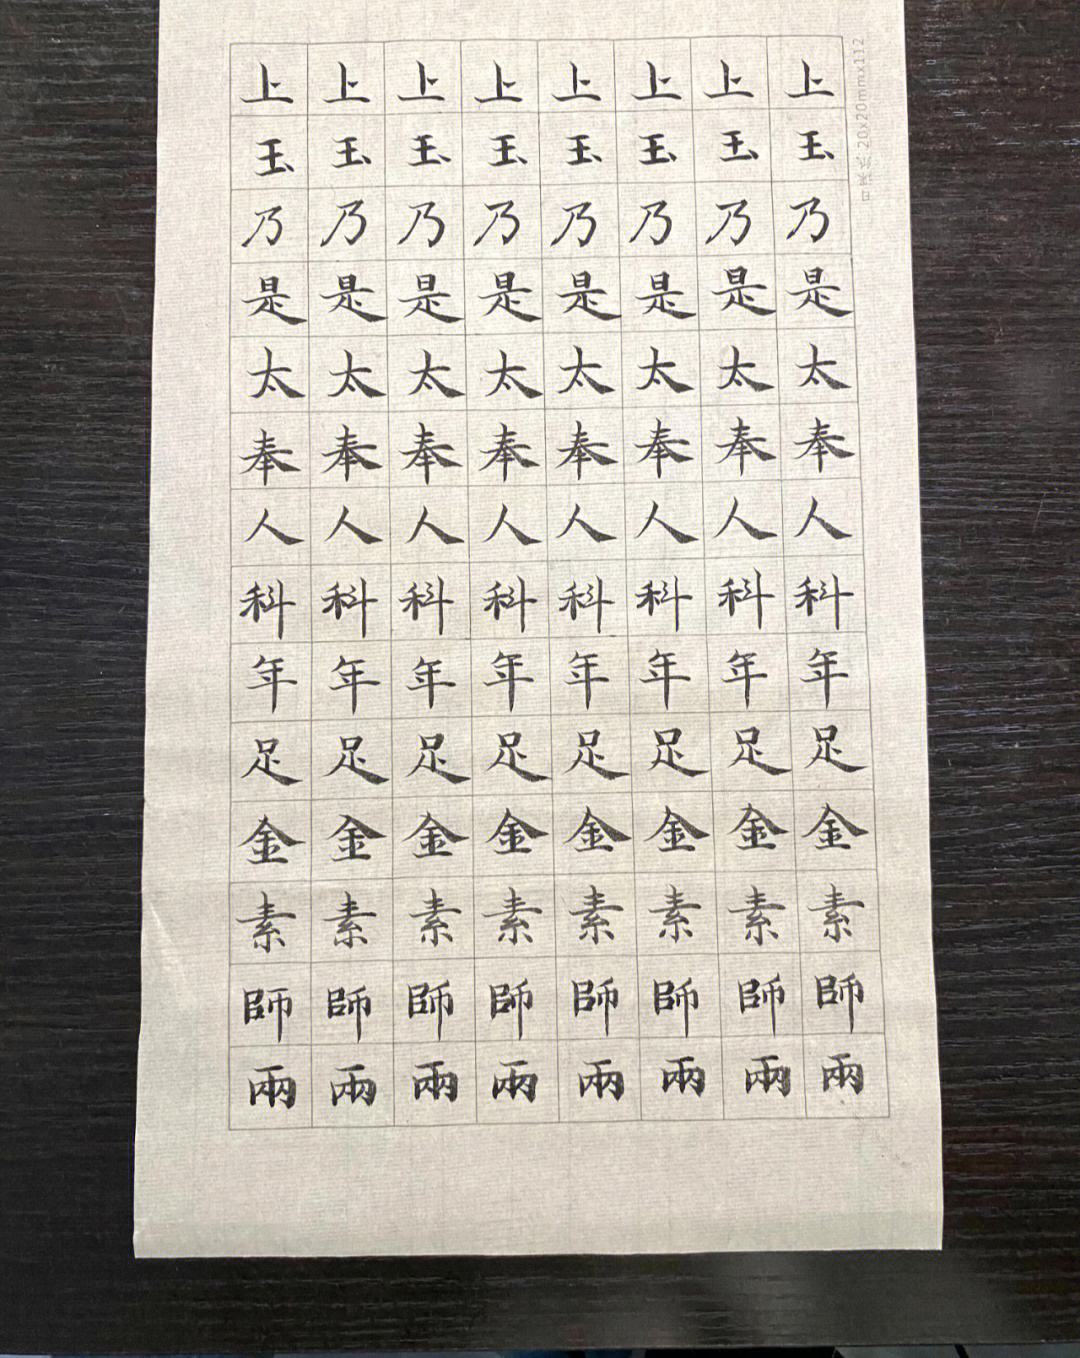 上上上上上上上上
玉玉玉玉玉玉玉玉
乃乃乃乃乃乃乃乃
是是是是是是是是
太太太太太太太太
奉奉奉奉奉奉奉奉
人人人人人人人人
科科科科科科科科
年年年年年年年年
足足足足足足足足
金金金金金金金金
素素素素素素素素
師師師師師師師師
兩兩兩兩兩兩兩兩
20x20mmx112